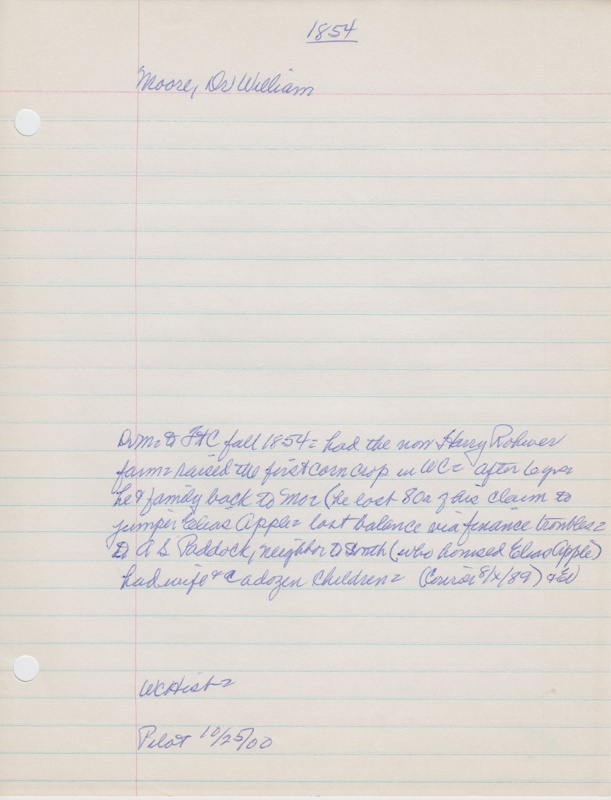 1854
Moore, Dr William
Dr M to FtC fall 1854 = had the now Harry Rohwer
farm = raised the first corn crop in WC = after 6 yrs
he & family back to Mo = (he lost 80a of his claim to
jumper Elias Apple = lost balance via finance troubles =
to A S Paddock, neighbor to South (who housed Elias Apple)
had wife & a dozen children = (Conroi 8/x/89)
WC Hist =
Pilot 10/25/00